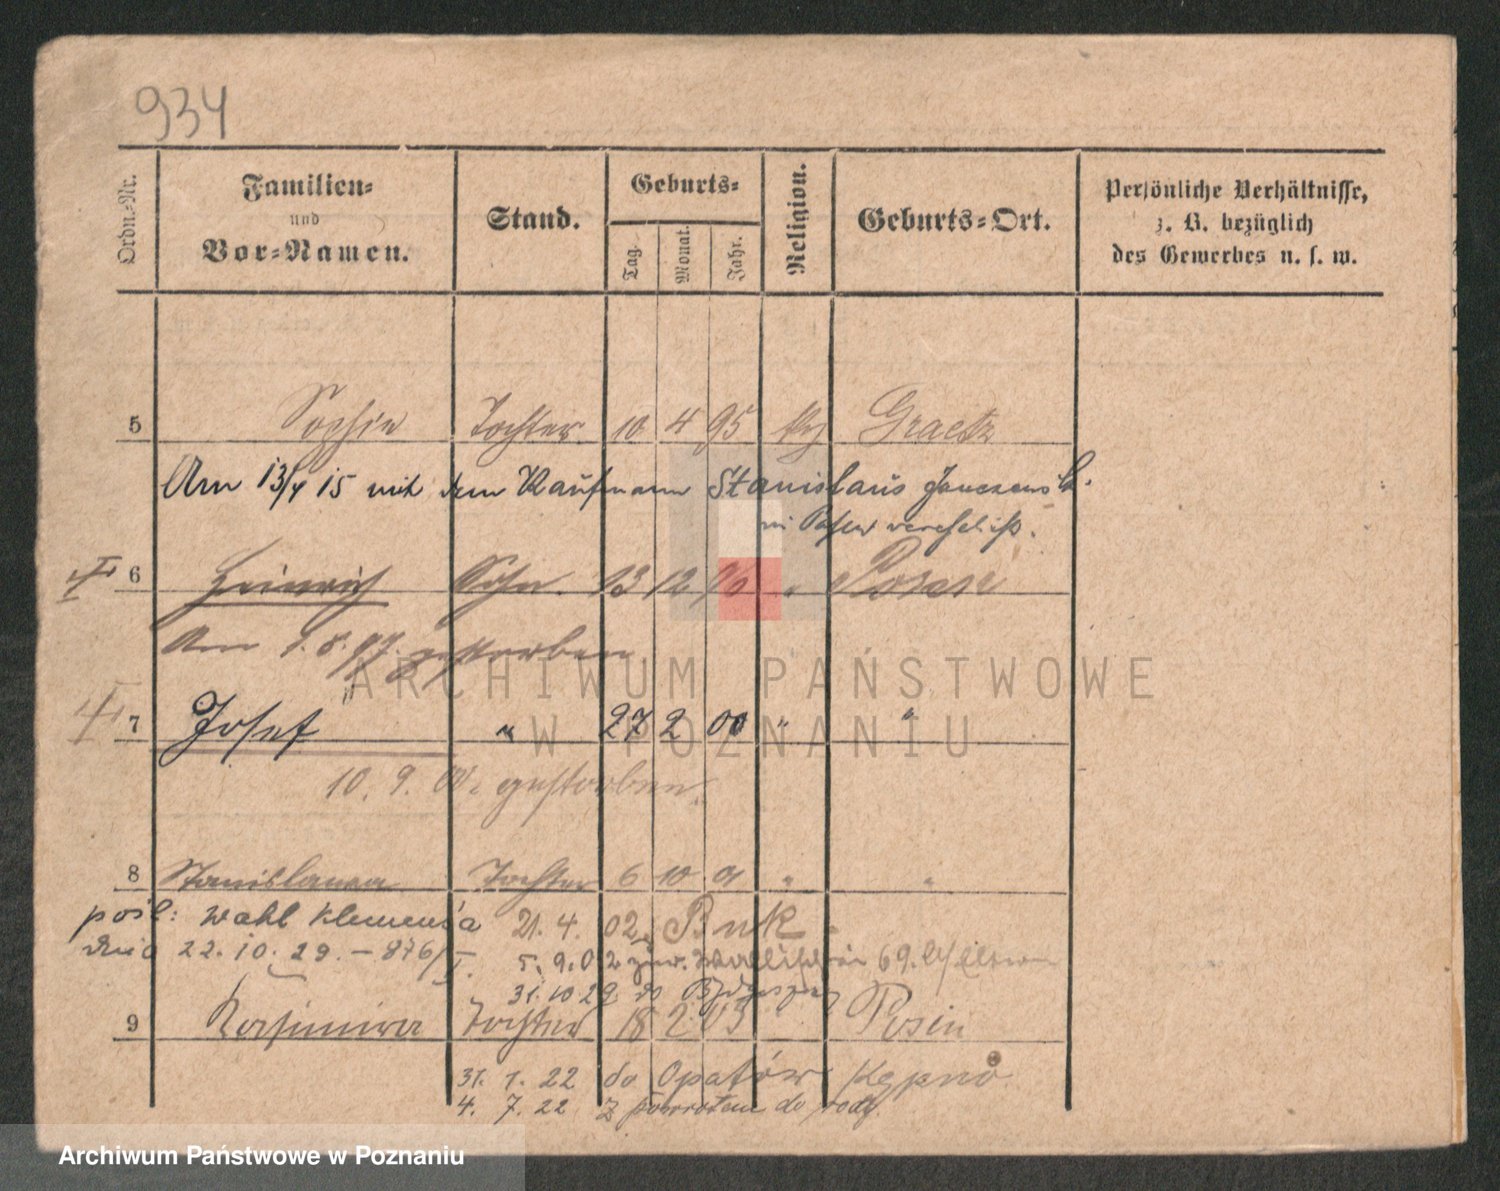 934
Ordn.-Nr. Familien- und Vor-Namen. Stand. Geburts- Tag. Monat. Jahr. Religion. Geburts-Ort. Persönliche Verhältnisse, z. B. bezüglich des Gewerbes u. s. w.
5 Sophie Tochter 10 4 95 Graetz
Am 13/4 15 mit dem Kaufmann Stanislaus
in Posen verehelicht.
6 Heinrich Sohn. 13 12 96 " Posen
Am 1.8.97. gestorben
7 Josef " 27 2 00 " "
10. 9. 00. gestorben.
8 Stanislawa Tochter 6 10 01 " "
pośl: Wahl Klemensa 21. 4. 02. Buk.
dnia 22. 10. 29. - 876/I. 5. 9. 02 69.
31. 10 29 do Bydgoszczy
9 Kasimira Tochter 18 2 03 Posen
31. 1. 22 do Opatów Kępno
4. 7. 22 z powrotem do rodz.
ARCHIWUM PAŃSTWOWE
W POZNANIU
Archiwum Państwowe w Poznaniu